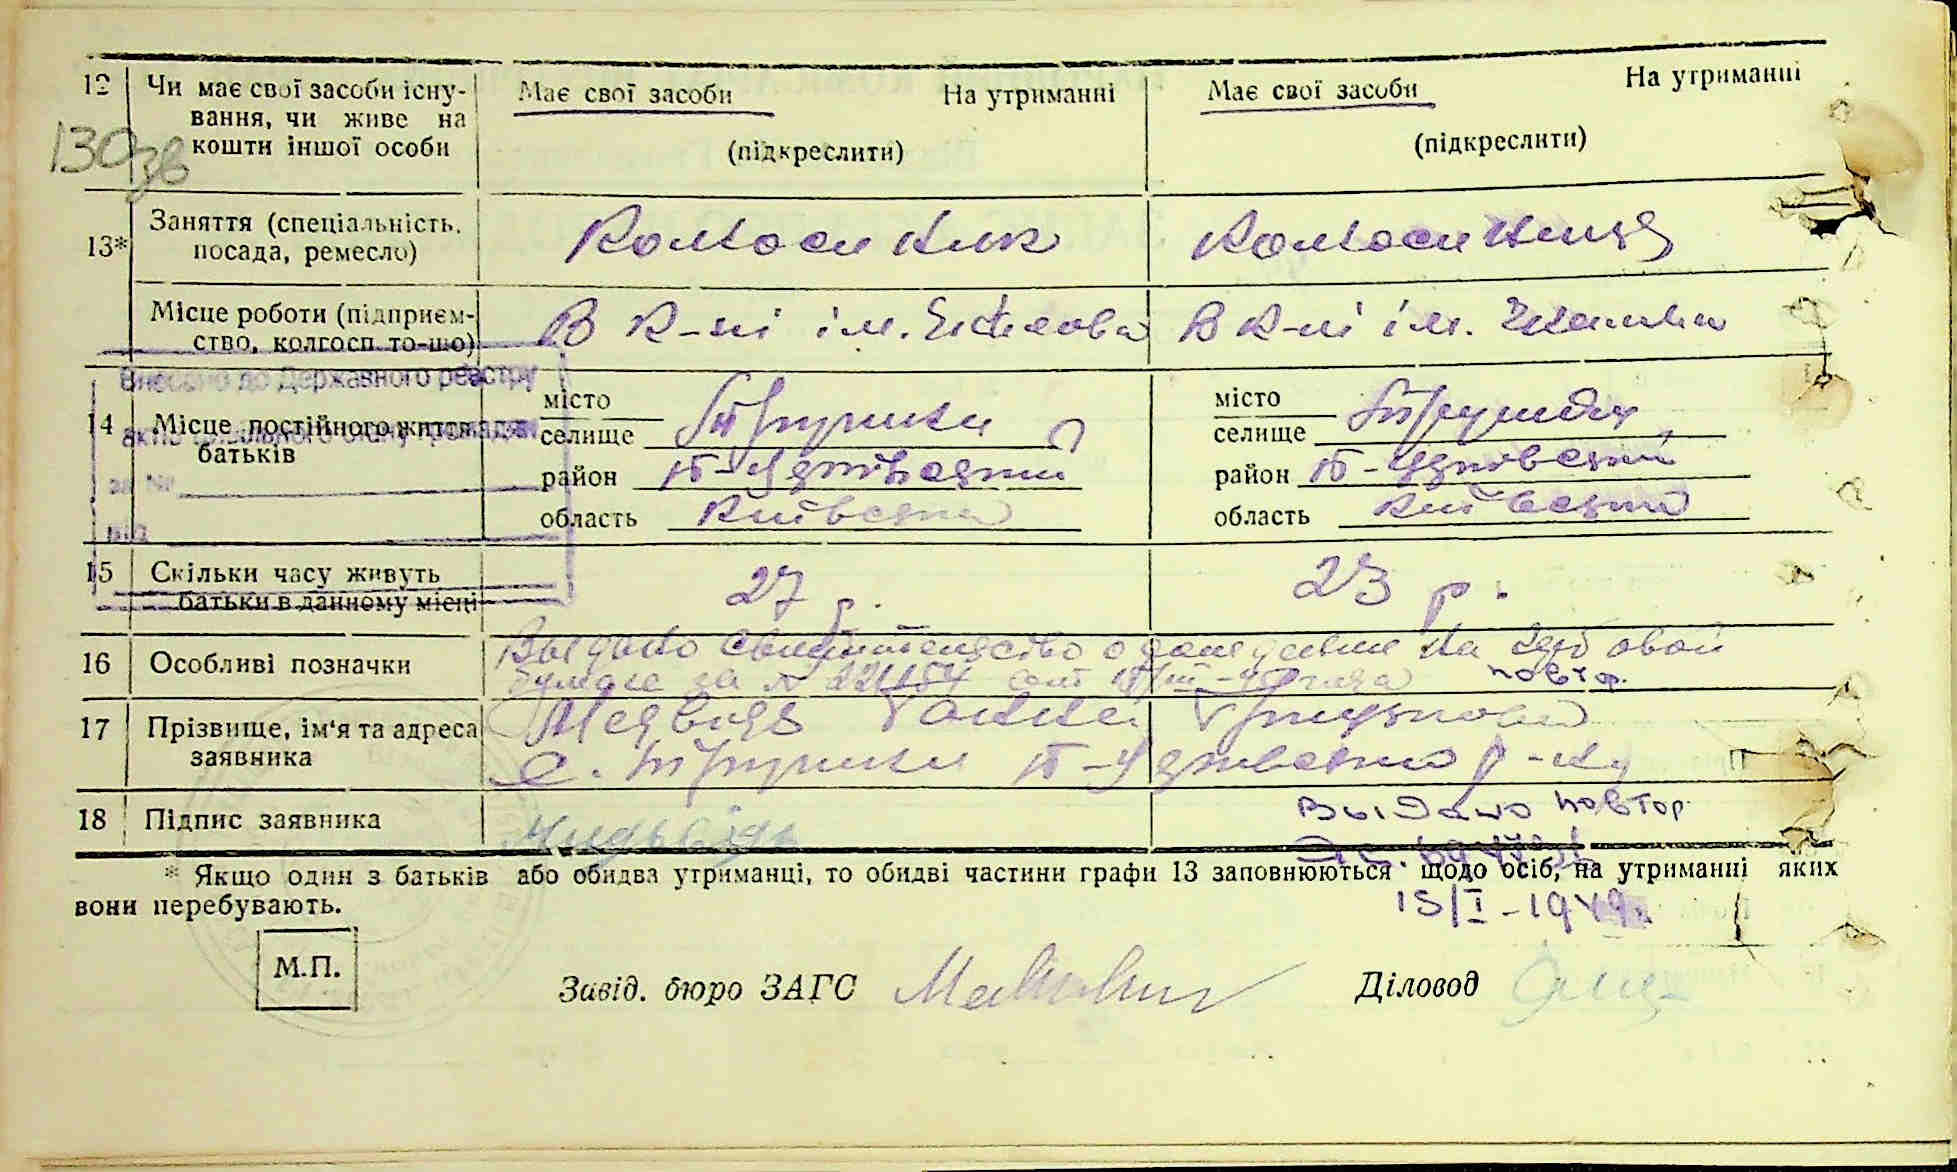 12 Чи має свої засоби існу-
вання, чи живе на
кошти іншої особи
Має свої засоби На утриманні
(підкреслити)
Має свої засоби На утриманні
(підкреслити)
130зв
13* Заняття (спеціальність,
посада, ремесло)
Колхосник
Колхосница
Місце роботи (підприєм-
ство, колгосп то-що)
В к-пі ім.
В к-пі ім.
Внесено до Державного реєстру
актів цивільного стану громадян
за №
від
14 Місце постійного життя
батьків
місто
селище Трушки
район Б-Церківский
область Київська
місто
селище Трушки
район Б-Церківский
область Київська
15 Скільки часу живуть
батьки в данному місці
27 р.
23 р.
16 Особливі позначки
Выдано свидетельство о рождении на гербовой
бумаге за № повтр.
17 Прізвище, ім'я та адреса
заявника
Медвидь
с. Трушки Б-Церківского р-ну
18 Підпис заявника
Выдано повтор.
* Якщо один з батьків або обидва утриманці, то обидві частини графи 13 заповнюються щодо осіб, на утриманні яких
вони перебувають.
15/I-1949г.
М.П.
Завід. бюро ЗАГС
Діловод